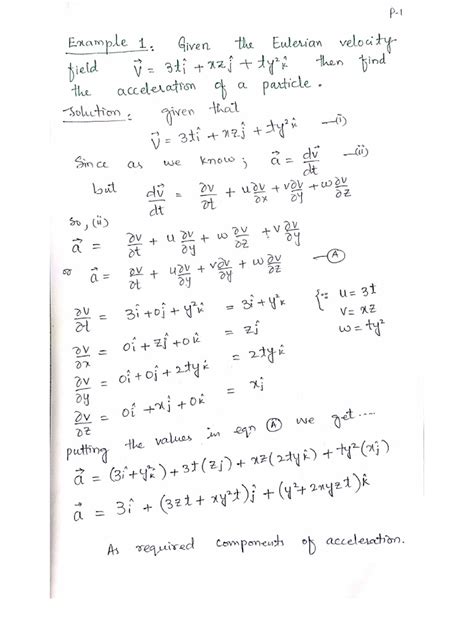 P-1
Example 1. Given the Eulerian velocity
field V⃗ = 3tî + xzĵ + ty²k̂ then find
the acceleration of a particle.
Solution: given that
V⃗ = 3tî + xzĵ + ty²k̂ —(i)
Since as we know; a⃗ = dv⃗/dt —(ii)
but dv⃗/dt = ∂v/∂t + u∂v/∂x + v∂v/∂y + w∂v/∂z
So, (ii)
a⃗ = ∂v/∂t + u∂v/∂y + w∂v/∂z + v∂v/∂y
or a⃗ = ∂v/∂t + u∂v/∂y + v∂v/∂y + w∂v/∂z —(A)
∂v/∂t = 3î + 0ĵ + y²k̂ = 3î + y²k {∵ u = 3t
v = xz
w = ty²
∂v/∂x = 0î + zĵ + 0k̂ = zĵ
∂v/∂y = 0î + 0ĵ + 2tyk̂ = 2tyk̂
∂v/∂z = 0î + xĵ + 0k̂ = xĵ
putting the values in eqn (A) we get....
a⃗ = (3î + y²k̂) + 3t(zĵ) + xz(2tyk̂) + ty²(xĵ)
a⃗ = 3î + (3zt + xy²t)ĵ + (y² + 2xyzt)k̂
As required components of acceleration.